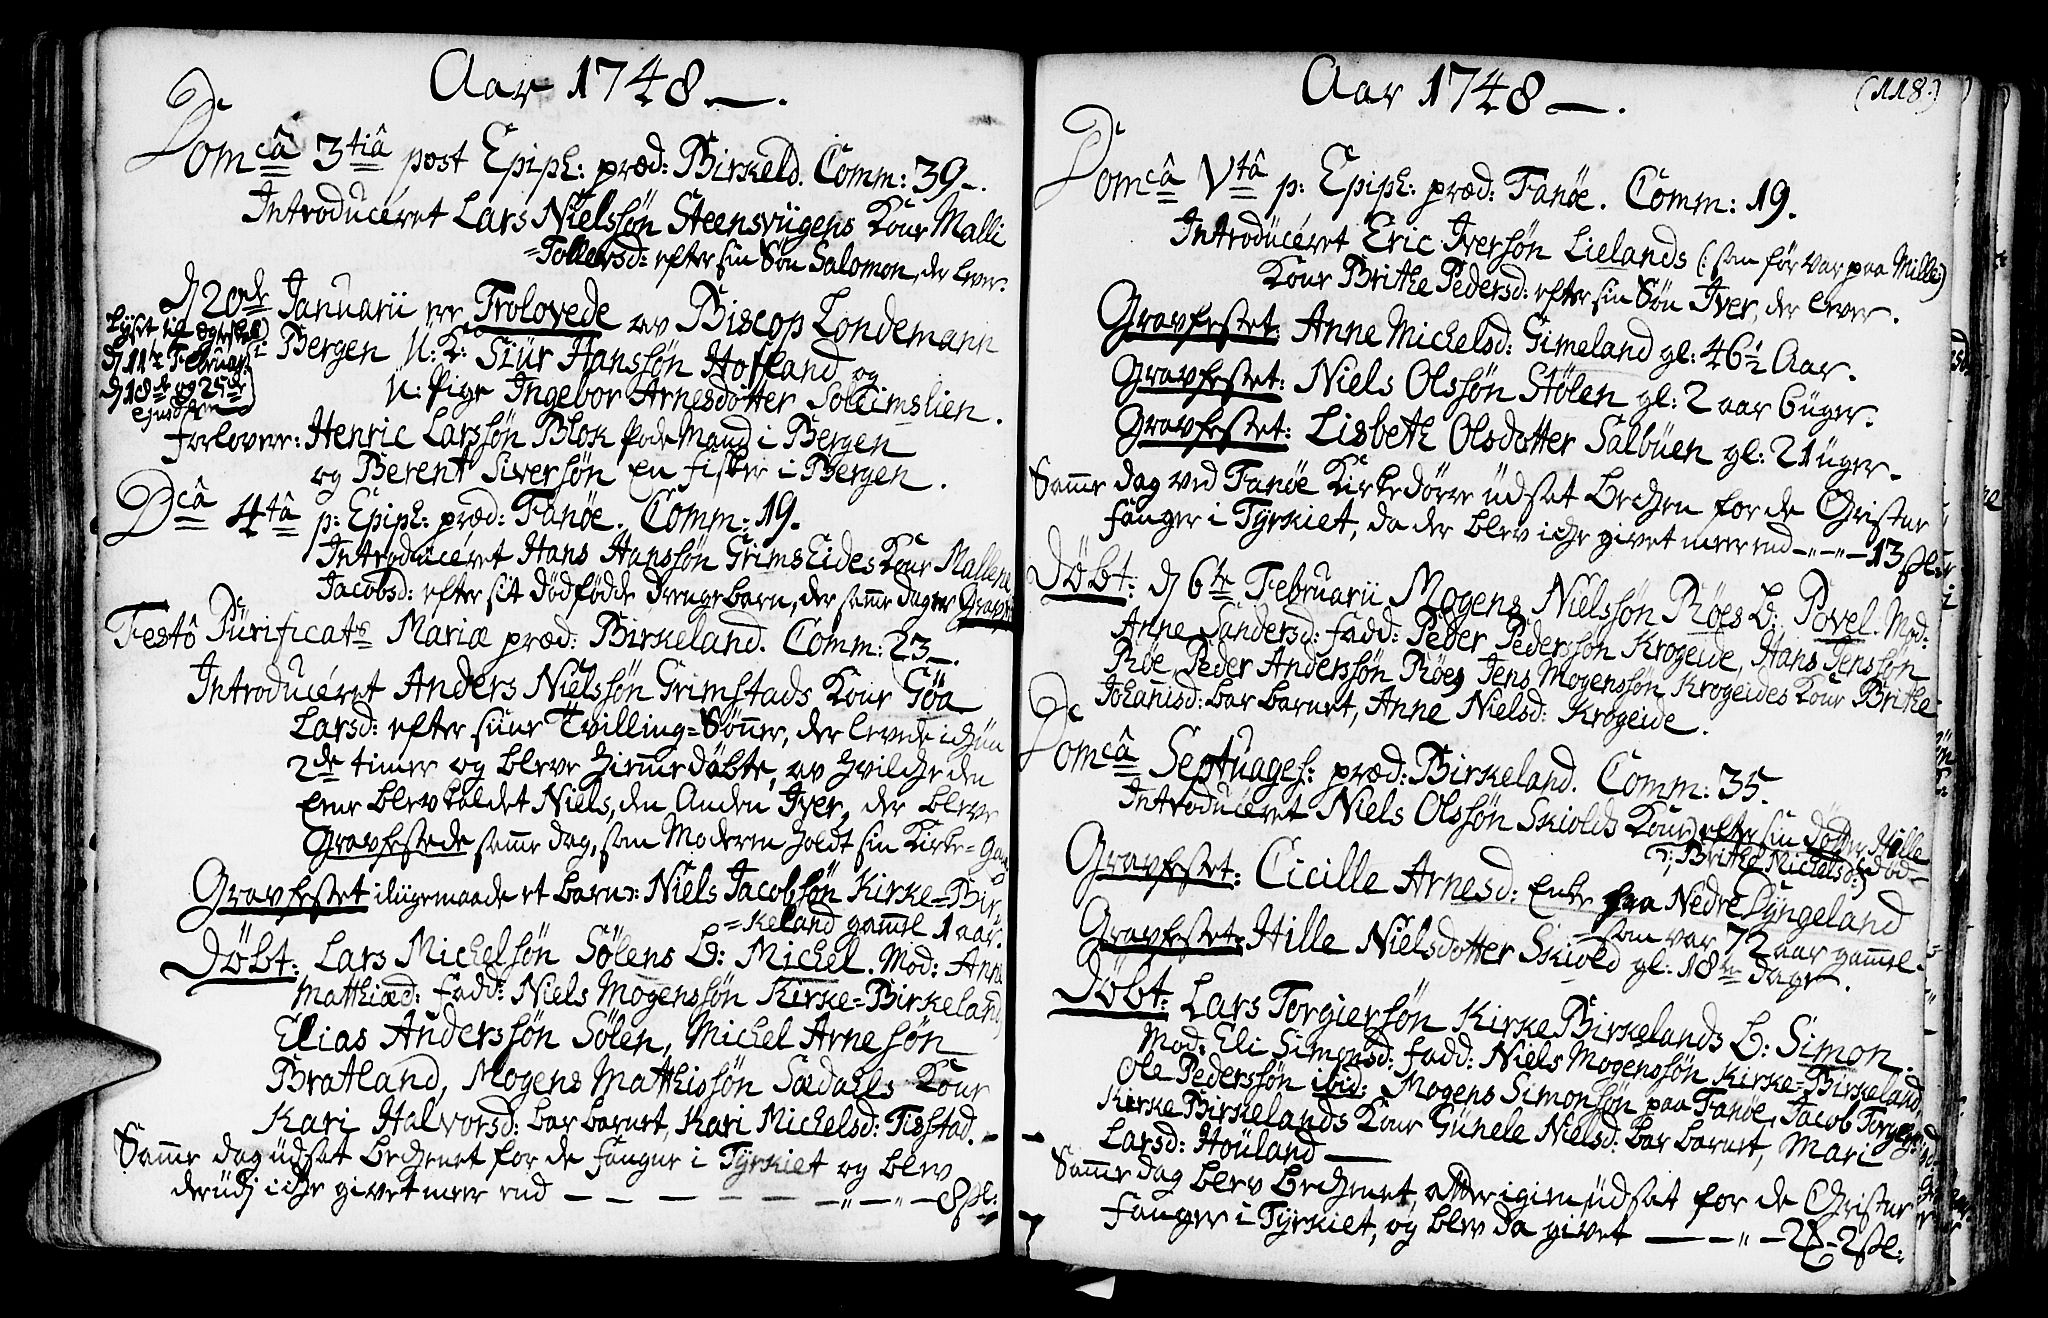 Aar 1748 —.
Domcâ 3tiâ post Epiph: præd: Birkeld. Comm: 39 —.
Introduceret Lars Nielssøn Steensvügens Kone Malli
=Tollersd: efter sin Søn Salomon, der lever.
D 20de Januarii ere Trolovede av Biscop Londemann
i Bergen U: K: Siür Hanssøn Hofland og
U: Pige Ingebor Arnesdotter Soleimslien.
Lyst til Ægteskab
D 11te Februar:
D 18de og 25de
Ejusdem
Forlover: Henric Larssøn Blok Pode Mand i Bergen
og Berent Siversøn en fisker i Bergen.
Dcâ 4tâ p: Epiph: præd: Fanøe. Comm: 19.
Introduceret Hans Hanssøn Grimseides Kone Mallene
Jacobsd: efter sit dødfødde drengebarn, der samme dag er Gravf
Festô Pürificat: Mariæ præd: Birkeland. Comm: 23 —.
Introduceret Anders Nielssøn Grimstads Kone Göa
Larsd: efter siine Tvilling=Sønner, der levede ickün
2de timer og bleve hiemmedøbte, av hvilche den
Eene blev kaldet Niels, den Anden Iver, der bleve
Gravfestede samme dag, som Moderen holdt sin Kirke=Gang
Gravfestet iligemaade et barn: Niels Jacobsøn Kirke=Bir
=keland gammel 1 aar.
Døbt: Lars Michelsøn Sølens b: Michel. Mod: Anna
Matthiæd: fadd: Niels Mogenssøn Kirke=Birkeland,
Elias Anderssøn Sølen, Michel Arnesøn
Bratland, Mogens Matthissøn Sædahls Kone
Kari Halvorsd: bar barnet, Kari Michelsd: Tisstad.
Samme dag udsat Bechenet for de fangne i Tyrkiet og blev
derudj iche givet meer end — — — — — 8 sk:
Aar 1748 —. (118.)
Domcâ Vtâ p: Epiph: præd: Fanøe. Comm: 19.
Introdüceret Eric Iversøn Lielands (: som før var paa Mille:)
Kone Brithe Pedersd: efter sin Søn Iver, der lever.
Gravfestet: Anne Michelsd: Gimeland gl: 46½ Aar.
Gravfestet: Niels Olssøn Stølen gl: 2 aar 6 üger.
Gravfestet: Lisbeth Olsdotter Salbüen gl: 21 üger.
Samme dag ved Fanøe Kirkedørre üdsat Bechen for de Christne
fanger i Tyrkiet, da der blev iche givet meer end — " — " — 13 sk:
Døbt: D 6te Februarii Mogens Nielssøn Røes b: Povel. Mod:
Anne Sandersd: fadd: Peder Pederssøn Krogeide, Hans Jenssøn
Røe, Peder Anderssøn Røe, Jens Mogenssøn Krogeides Kone Brithe
Johanisd: bar barnet, Anne Nielsd: Krogeide.
Domcâ Septuages: præd: Birkeland. Comm: 35.
Introdüceret Niels Olssøn Skiolds Kone efter sin dotter Hille
Brithe Nicolsd: død
Gravfestet: Cicille Arnesd: Enke fra Nedre Lyngeland
=som var 72 aar gammel.
Gravfestet: Hille Nielsdotter Skiold gl: 18 dage.
Døbt: Lars Torgiersøn Kirke Birkelands b: Simon.
Mod: Eli Simonsd: fadd: Niels Mogenssøn Kirke=Birkeland,
Ole Pederssøn ibid: Mogens Simonsøn paa Fanøe, Jacob Torgers
Kirke Birkelands Kone Günele Nielsd: bar barnet, Mari
Larsd: Houland —
Samme dag blev Bechenet atter igien üdsat for de Christne
fanger i Tyrkiet, og blev da givet — — " — 2 — 2 sk: